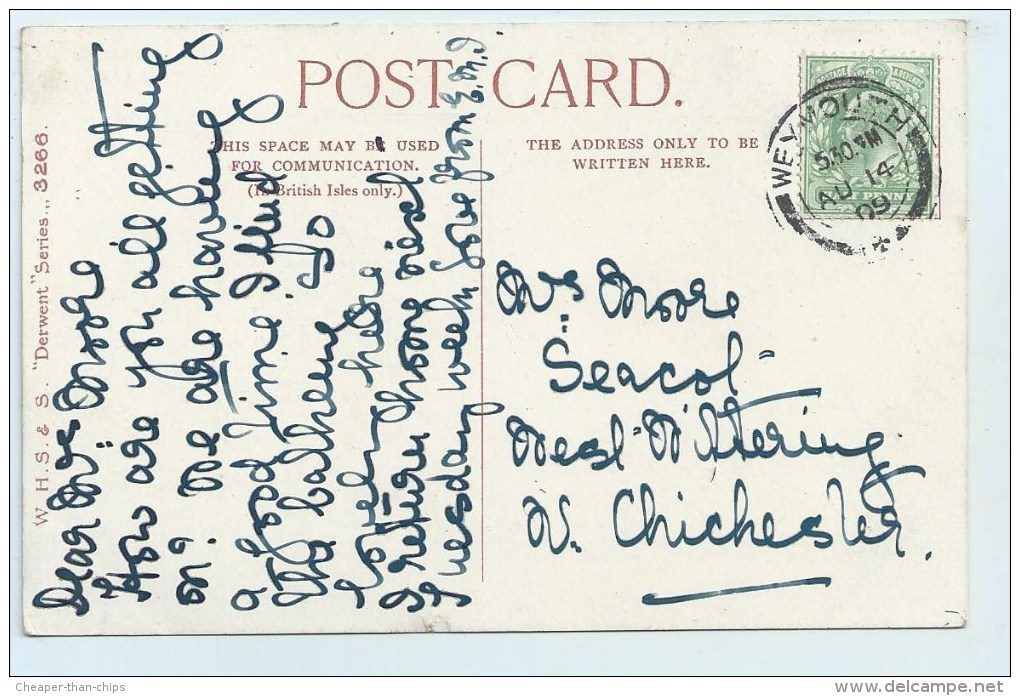 POST CARD.
THIS SPACE MAY BE USED
FOR COMMUNICATION.
(In British Isles only.)
THE ADDRESS ONLY TO BE
WRITTEN HERE.
W. H. S. & S. "Derwent" Series... 3266.
WEYMOUTH
5.30 PM
AU 14
09
Dear Mrs Moore
How are you all getting
on? We are having
a good time. I find
the batheing so
lovely here
I return home next
Tuesday week love from E. M.
Mrs Moore
"Seacot"
West Wittering
N. Chichester.
Cheaper-than-chips
www.delcampe.net